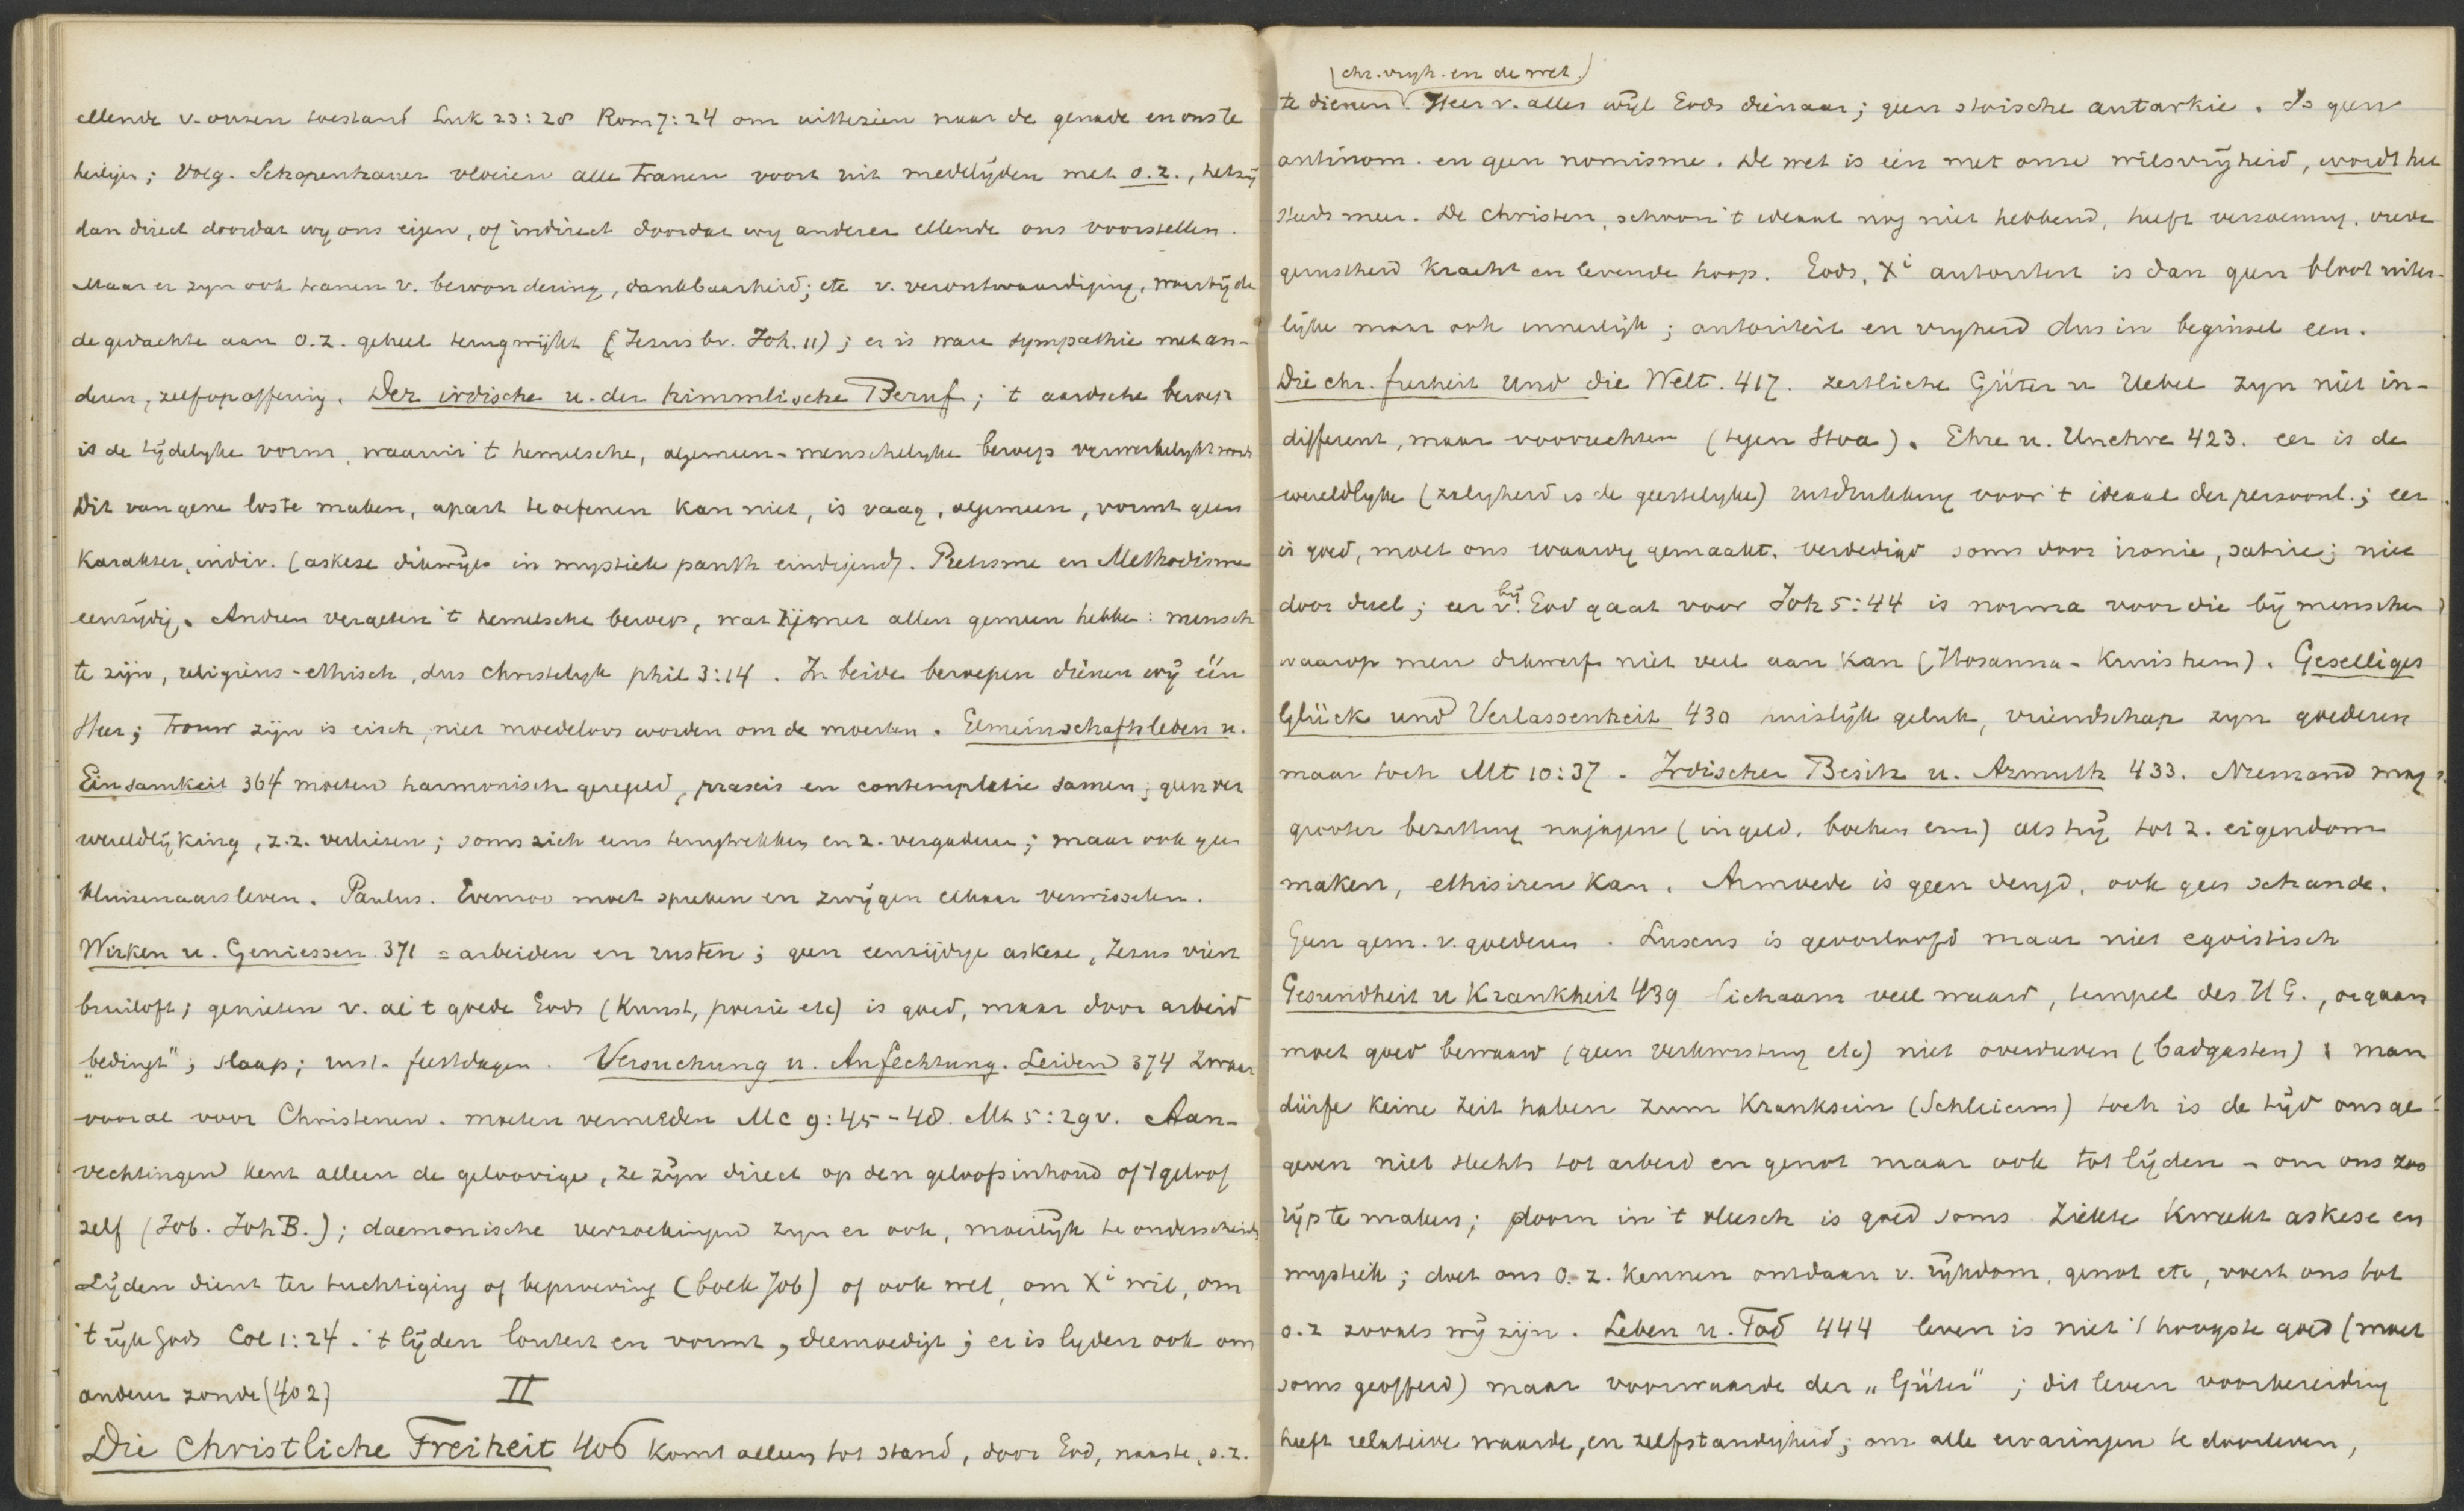 ellende v. onzen toestand Luk 23:28 Rom 7:24 om uittezien naar de genade en ons te
heiligen; Volg. Schopenhauer vloeien alle tranen voort uit medelijden met o.z., hetzij
dan direct doordat wy ons eigen, of indirect doordat wy anderer ellende ons voorstellen.
Maar er zyn ook tranen v. bewondering, dankbaarheid; etc v. verontwaardiging, waarbij de
de gedachte aan o.z. geheel terugwijkt (Jezus bv. Joh. 11); er is ware sympathie met an-
deren, zelfopoffering. Der irdische u. der himmlische Beruf; 't aardsche beroep
is de tijdelyke vorm, waarin 't hemelsche, algemeen-menschelyke beroep verwerkelykt wordt
Dit van gene los te maken, apart te oefenen kan niet, is vaag, algemeen, vormt geen
karakter, indiv. (askese dikwijls in mystiek panth eindigend). Pietisme en Methodisme
eenzydig. Andren vergeten 't hemelsche beroep, wat zij met allen gemeen hebben: mensch
te zijn, religieus-ethisch, dus christelyk phil 3:14. In beide beroepen dienen wij één
Heer; trouw zijn is eisch, niet moedeloos worden om de moeiten. Gemeinschaftsleben u.
Einsamkeit 364 moeten harmonisch geregeld, praxis en contemplatie samen; geen ver
wereldlijking, z.z. verliezen; soms zich eens terugtrekken en z. vergaderen; maar ook geen
kluizenaarsleven. Paulus. Evenzoo moet spreken en zwijgen elkaar verwisselen.
Wirken u. Geniessen 371 = arbeiden en rusten; geen eenzijdige askese, Jezus viert
bruiloft; genieten v. al 't goede Gods (Kunst, poezie etc) is goed, maar door arbeid
„bedingt"; slaap; rust- feestdagen. Versuchung u. Anfechtung. Leiden 374 zwaar
vooral voor Christenen. moeten vermeden Mc 9:45-48. Mt 5:29v. Aan-
vechtingen kent alleen de geloovige, ze zijn direct op den geloofsinhoud of 't geloof
zelf (Job. Joh B.); daemonische verzoekingen zyn er ook, moeilijk te onderscheiden
Lijden dient ter tuchtiging of beproeving (boek Job) of ook wel, om Xi wil, om
't rijk Gods Col 1:24. 't lijden loutert en vormt, deemoedigt; er is lyden ook om
anderer zonde (402)
II
Die Christliche Freiheit 406 komt alleen tot stand, door God, naaste, o.z.
(chr. vryh. en de wet.)
te dienen Heer v. alles wijl Gods dienaar; geen stoische autarkie. Is geen
antinom. en geen nomisme. De wet is één met onze wilsvrijheid, wordt het
steeds meer. De christen, schoon 't ideaal nog niet hebbend, heeft verzoening, vrede
gerustheid kracht en levende hoop. Gods, Xi autoriteit is dan geen bloot uiter-
lijke maar ook innerlijk; autoriteit en vryheid dus in beginsel een.
Die chr. freiheit und die Welt. 417. zeitliche Güter u Uebel zyn niet in-
different, maar voorrechten (tegen Stoa). Ehre u. Unehre 423. eer is de
wereldlyke (zaligheid is de geestelyke) uitdrukking voor 't ideaal der persoonl.; eer
is goed, moet ons waardig gemaakt. verdedigd soms door ironie, satire; niet
door duel; eer v. bij God gaat voor Joh 5:44 is norma voor die bij menschen
waarop men dikwerf niet veel aan kan (Hosanna - Kruis hem). Geselliges
Glück und Verlassenheit 430 huislijk geluk, vriendschap zyn goederen
maar toch Mt 10:37. Irdischer Besitz u. Armuth 433. Niemand mag
grooter bezitting najagen (in geld, boeken enz) als hij tot z. eigendom
maken, ethisiren kan. Armoede is geen deugd, ook geen schande.
Geen gem. v. goederen. Luxus is geoorloofd maar niet egoistisch
Gesundheit u Krankheit 439 lichaam veel waard, tempel des HG., orgaan
moet goed bewaard (geen verkwisting etc) niet overdreven (badgasten): man
dürfe keine Zeit haben zum Kranksein (Schleierm) toch is de tijd ons ge
geven niet slechts tot arbeid en genot maar ook tot lijden - om ons zoo
rijp te maken; doorn in 't vleesch is goed soms. Ziekte kweekt askese en
mystiek; doet ons o.z. kennen ontdaan v. rijkdom, genot etc, voert ons tot
o.z zooals wij zijn. Leben u. Tod 444 leven is niet 't hoogste goed (moet
soms geofferd) maar voorwaarde der „Güter"; dit leven voorbereiding
heeft relatieve waarde, en zelfstandigheid; om alle ervaringen te doorleven,